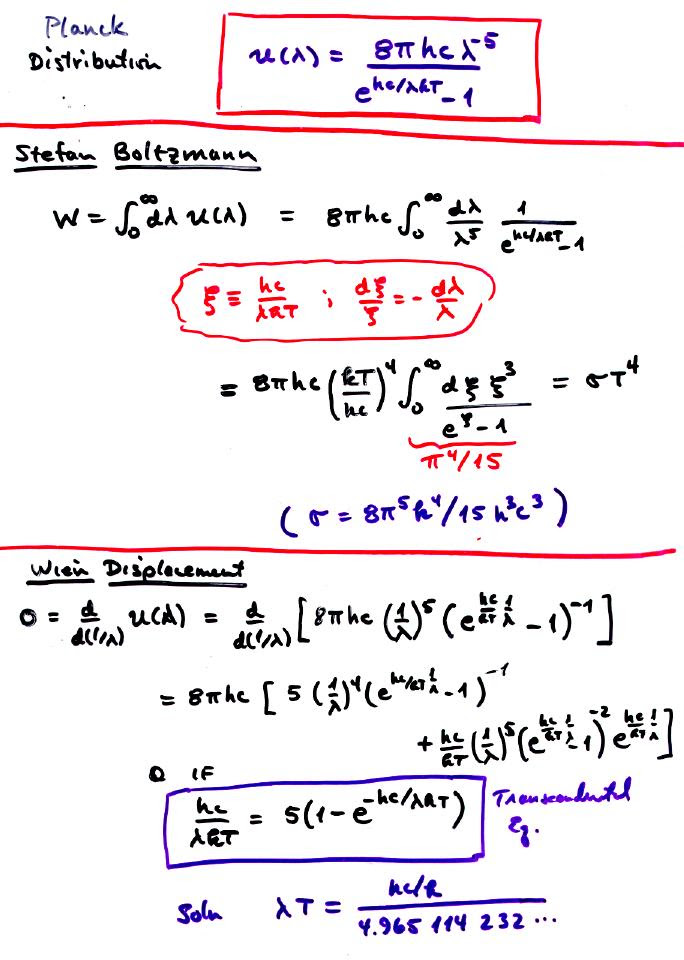 Planck
Distribution
u(λ) = 8πhcλ⁻⁵ / (e^{hc/λkT} - 1)
Stefan Boltzmann
W = ∫₀^∞ dλ u(λ) = 8πhc ∫₀^∞ dλ/λ⁵ 1/(e^{hc/λkT} - 1)
ξ ≡ hc/λkT ; dξ/ξ = - dλ/λ
= 8πhc (kT/hc)⁴ ∫₀^∞ dξ ξ³/(e^ξ - 1) = σT⁴
π⁴/15
(σ = 8π⁵k⁴/15h³c³)
Wien Displacement
0 = d/d(1/λ) u(λ) = d/d(1/λ) [8πhc (1/λ)⁵ (e^{hc/kT 1/λ} - 1)⁻¹]
= 8πhc [5 (1/λ)⁴ (e^{hc/kT 1/λ} - 1)⁻¹
+ hc/kT (1/λ)⁵ (e^{hc/kT 1/λ} - 1)⁻² e^{hc/kT 1/λ}]
IF
hc/λkT = 5(1 - e^{-hc/λkT})
Transcendental
Eq.
Soln λT = hc/k / 4.965 114 232 ...